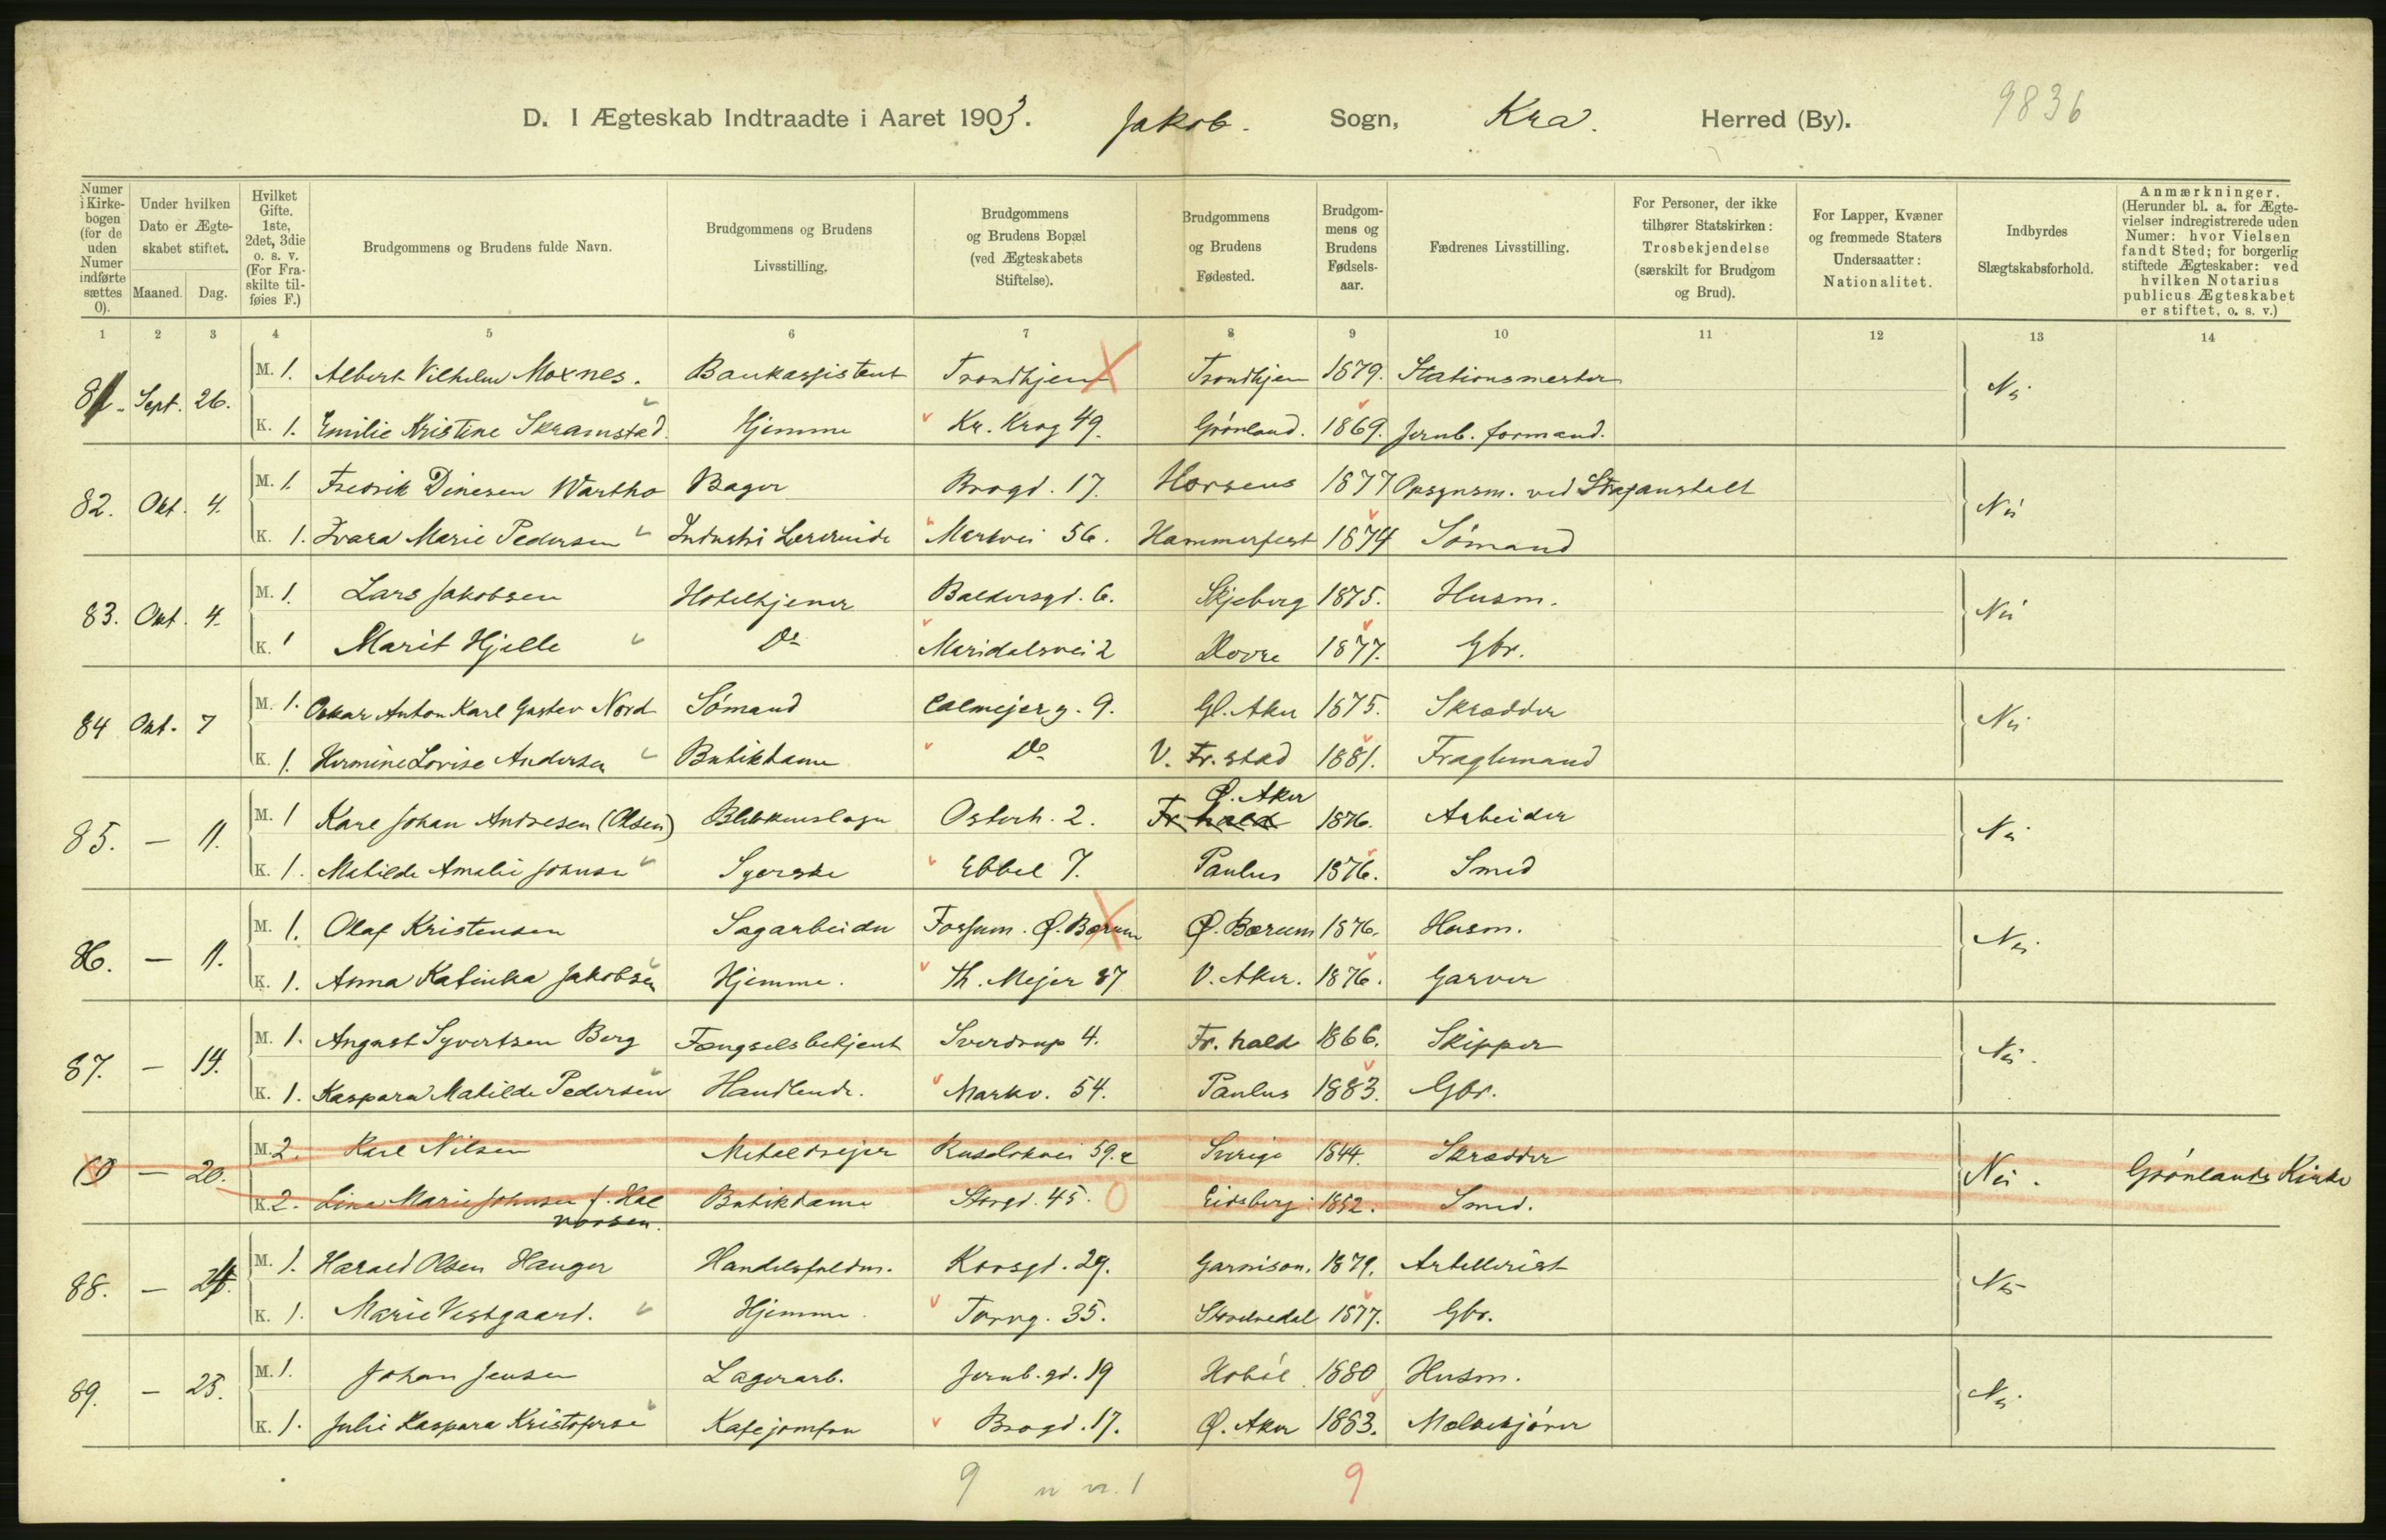 D. I Ægteskab Indtraadte i Aaret 1903. Jakob. Sogn, Kra. Herred (By). 9836
Numer i Kirkebogen (for de uden Numer indførte sættes 0).
Under hvilken Dato er Ægteskabet stiftet.
Maaned. Dag.
Hvilket Gifte. 1ste, 2det, 3die o. s. v. (For Fraskilte tilføies F.)
Brudgommens og Brudens fulde Navn.
Brudgommens og Brudens Livsstilling.
Brudgommens og Brudens Bopæl (ved Ægteskabets Stiftelse).
Brudgommens og Brudens Fødested.
Brudgommens og Brudens Fødselsaar.
Fædrenes Livsstilling.
For Personer, der ikke tilhører Statskirken: Trosbekjendelse (særskilt for Brudgom og Brud).
For Lapper, Kvæner og fremmede Staters Undersaatter: Nationalitet.
Indbyrdes Slægtskabsforhold.
Anmærkninger. (Herunder bl. a. for Ægtevielser indregistrerede uden Numer: hvor Vielsen fandt Sted; for borgerlig stiftede Ægteskaber: ved hvilken Notarius publicus Ægteskabet er stiftet, o. s. v.)
1 2 3 4 5 6 7 8 9 10 11 12 13 14
M. 1. Albert Vilhelm Moxnes. Bankassistent Trondhjem Trondhjem 1879. Stationsmester
81. Sept. 26. Nei
K. 1. Emilie Kristine Skramstad. Hjemme Kr. Krog 49. Grönland. 1869. Jernb. formand.
M. 1. Fredrik Dinesen Wartho Bager Brogd. 17. Horsens 1877 Opsynsm. ved Strafanstalt
82. Okt. 4. Nei
K. 1. Zvara Marie Pedersen Industri Lærerinde Markvei 56. Hammerfest 1874 Sömand
M. 1. Lars Jakobsen Hoteltjener Baldersgd. 6. Skjeberg 1875. Husm.
83. Okt. 4. Nei
K. 1 Marit Hjelle Do Maridalsvei 2 Dovre 1877. Gbr.
M. 1. Oskar Anton Karl Gustav Nord Sömand Calmejer g. 9. Gl. Aker 1875. Skrædder
84 Okt. 7 Nei
K. 1. Hermine Lovise Andersen Butikdame Do V. Fr.stad 1881. Fragtemand
Ø. Aker
M. 1 Karl Johan Andresen (Olsen) Blikkenslager Osterh. 2. Fr.hald 1876. Arbeider
85. — 11. Nei
K. 1. Matilde Amalie Johnsen Syerske Ebbel 7. Paulus 1876. Smed
M. 1. Olaf Kristensen Sagarbeider Fossum. Ø. Bærum Ø. Bærum 1876. Husm.
86. — 11. Nei
K. 1. Anna Katinka Jakobsen Hjemme. Th. Mejer 87 V. Aker. 1876. Garver
M. 1. August Syvertsen Berg Fængselsbetjent Sverdrup 4. Fr. hald 1866. Skipper
87. — 14. Nei.
K. 1. Kaspara Matilde Pedersen Handlende. Markv. 54. Paulus 1883. Gbr.
M. 2. Karl Nilsen Metaldrejer Ruseløkvei 59. Sverige 1844. Skrædder
0 — 20. Nei. Grönlands Kirke
K. 2. Lina Marie Johnsen f. Hal Butikdame Storgd. 45. Eidsberg 1852. Smed.
vorsen.
M. 1. Harald Olsen Hauger Handelsfuldm. Korsgd. 29. Garnison. 1879. Artellerist
88. — 24. Nei
K. 1. Marie Vestgaard. Hjemme Torvg. 35. Storelvedal 1877. Gbr.
M. 1. Johan Jensen Lagerarb. Jernb. gd. 19 Hobøl 1880 Husm.
89. — 25. Nei
K. 1. Julie Kaspara Kristoferse Kafejomfru Brogd. 17. Ø. Aker 1883. Melkekjörer
9 9